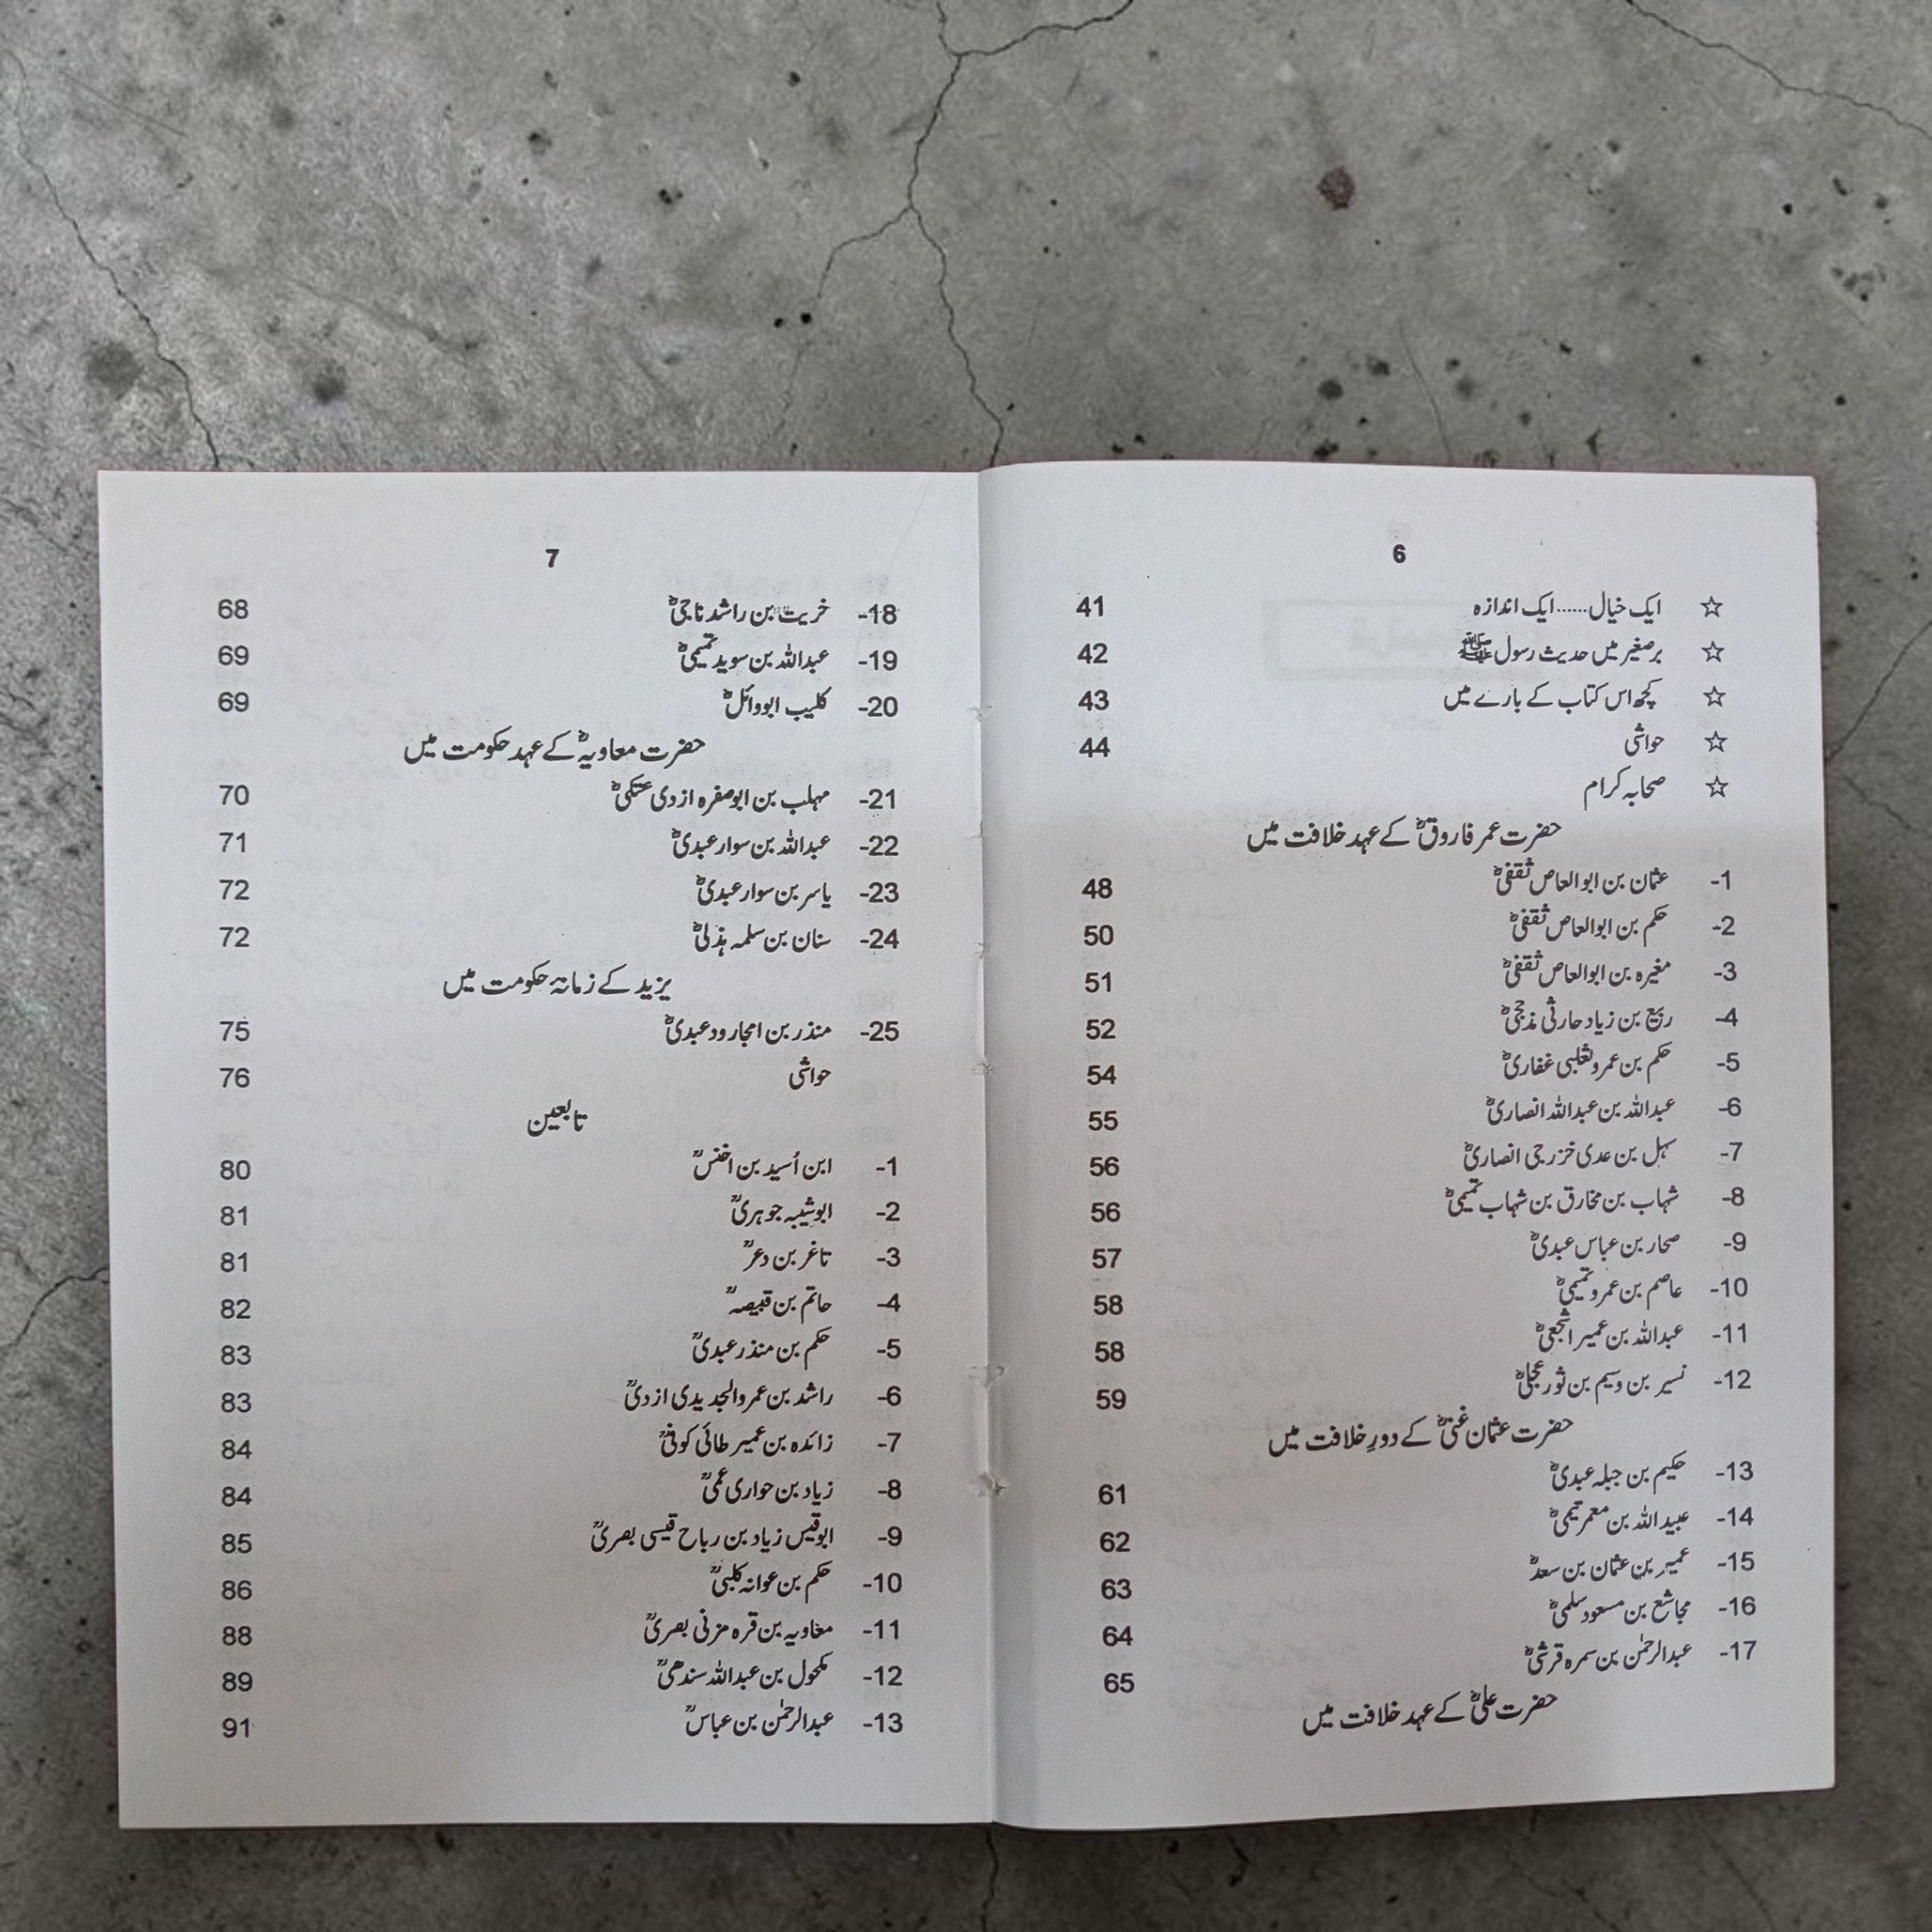 6
☆ ایک خیال......ایک اندازہ 41
☆ برصغیر میں حدیث رسول ﷺ 42
☆ کچھ اس کتاب کے بارے میں 43
☆ حواشی 44
☆ صحابہ کرام
حضرت عمر فاروقؓ کے عہد خلافت میں
1- عثمان بن ابوالعاص ثقفیؓ 48
2- حکم بن ابوالعاص ثقفیؓ 50
3- مغیرہ بن ابوالعاص ثقفیؓ 51
4- ربیع بن زیاد حارثی مذحجیؓ 52
5- حکم بن عمرو ثعلبی غفاریؓ 54
6- عبداللہ بن عبداللہ انصاریؓ 55
7- سہل بن عدی خزرجی انصاریؓ 56
8- شہاب بن مخارق بن شہاب تمیمیؓ 56
9- صحار بن عباس عبدیؓ 57
10- عاصم بن عمرو تمیمیؓ 58
11- عبداللہ بن عمیر اشجعیؓ 58
12- نسیر بن وسیم بن ثور عجلیؓ 59
حضرت عثمان غنیؓ کے دورِ خلافت میں
13- حکیم بن جبلہ عبدیؓ 61
14- عبیداللہ بن معمر تیمیؓ 62
15- عمیر بن عثمان بن سعدؓ 63
16- مجاشع بن مسعود سلمیؓ 64
17- عبدالرحمٰن بن سمرہ قرشیؓ 65
حضرت علیؓ کے عہد خلافت میں
7
18- خریت بن راشد ناجیؓ 68
19- عبداللہ بن سوید تمیمیؓ 69
20- کلیب ابووائلؓ 69
حضرت معاویہؓ کے عہد حکومت میں
21- مہلب بن ابوصفرہ ازدی عتکیؓ 70
22- عبداللہ بن سوار عبدیؓ 71
23- یاسر بن سوار عبدیؓ 72
24- سنان بن سلمہ ہذلیؓ 72
یزید کے زمانۂ حکومت میں
25- منذر بن امجارود عبدیؓ 75
حواشی 76
تابعین
1- ابن اُسید بن اخنسؒ 80
2- ابوشیبہ جوہریؒ 81
3- تاغر بن دعرؒ 81
4- حاتم بن قبیصہؒ 82
5- حکم بن منذر عبدیؒ 83
6- راشد بن عمرو الجدیدی ازدیؒ 83
7- زائدہ بن عمیر طائی کوفیؒ 84
8- زیاد بن حواری عمیؒ 84
9- ابوقیس زیاد بن رباح قیسی بصریؒ 85
10- حکم بن عوانہ کلبیؒ 86
11- معاویہ بن قرہ مزنی بصریؒ 88
12- مکحول بن عبداللہ سندھیؒ 89
13- عبدالرحمٰن بن عباسؒ 91